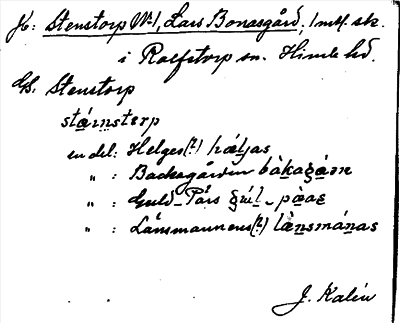 Jr: Stenstorp No 1, Lars Bonasgård, 1 mtl. sk.
i Rolfstorp sn. Himle hd.
Gs. Stenstorp
stä́ɩnsterp
en del: Helges(?) hæljas
" : Backagården bàkagàm
" : Guld-Pårs gúl-pàas
" : Länsmannens(?) lànsmánas
J. Kalén